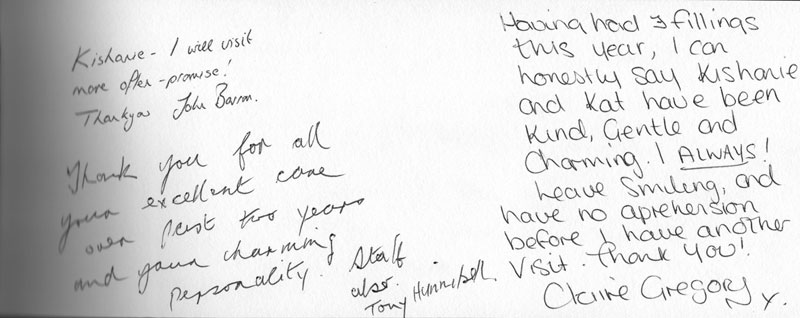 Kishanie - I will visit
more often - promise!
Thankyou John Barron.
Thank you for all
your excellent care
over past two years
and your charming
personality. Staff
also.
Tony Hunnisett.
Having had 3 fillings
this year, I can
honestly say Kishanie
and Kat have been
Kind, Gentle and
Charming. I ALWAYS!
Leave Smiling, and
have no aprehension
before I have another
Visit. Thank You!
Claire Gregory x.